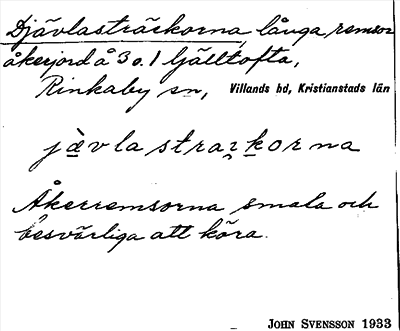 Djävlasträckorna, långa remsor
åkerjord å 3 o. 1 Gjälltofta,
Rinkaby sn, Villands hd, Kristianstads län
jävlastrarkorna
Åkerremsorna smala och
besvärliga att köra.
JOHN SVENSSON 1933